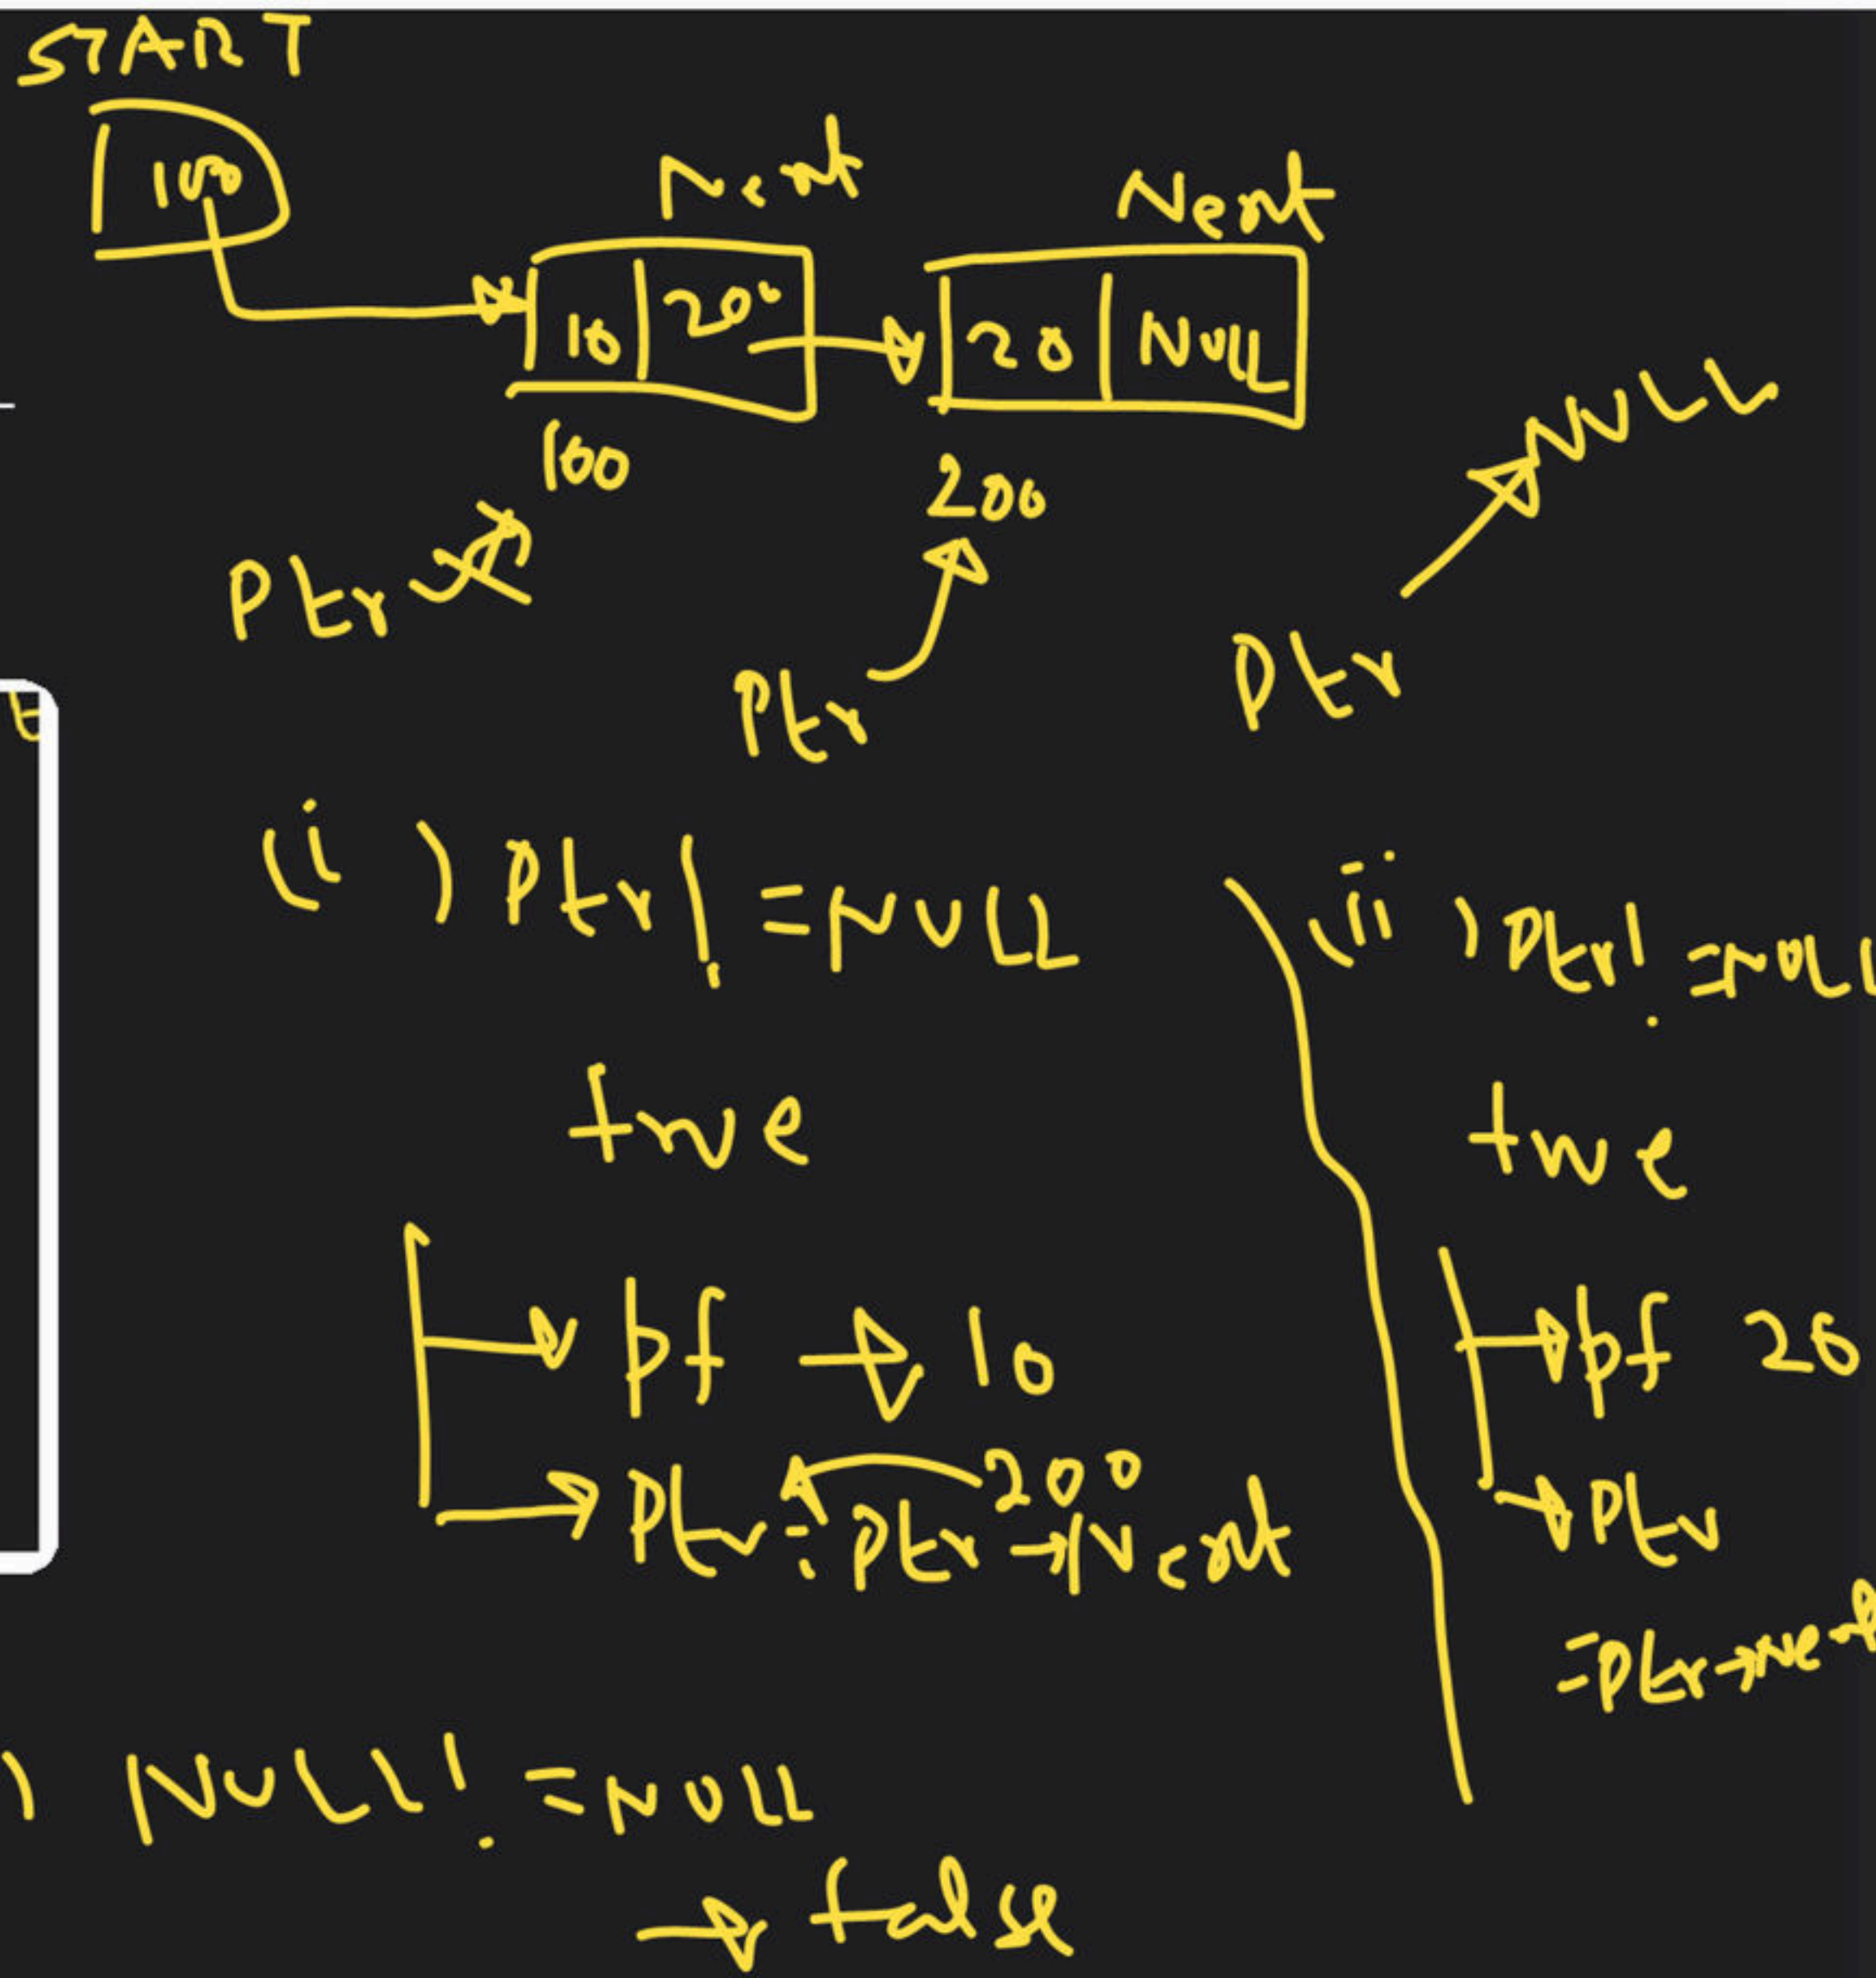 START
100
Next Next
10 200 20 NULL
100 200 NULL
Ptr
Ptr Ptr
(i) Ptr != NULL
true
pf → 10
200
Ptr = Ptr → Next
(ii) Ptr != NULL
true
pf 20
Ptr
= Ptr → Next
) NULL != NULL
→ false